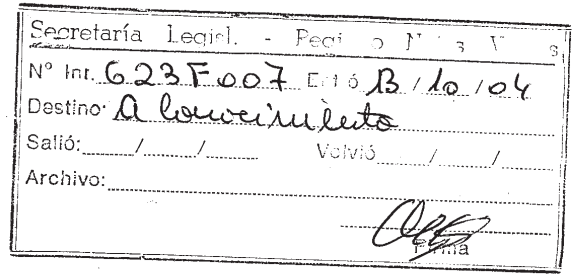 Secretaría Legisl. -
Nº Int. 623 F007 Entró 13 / 10 / 04
Destino: A conocimiento
Salió: / / Volvió / /
Archivo:
Firma